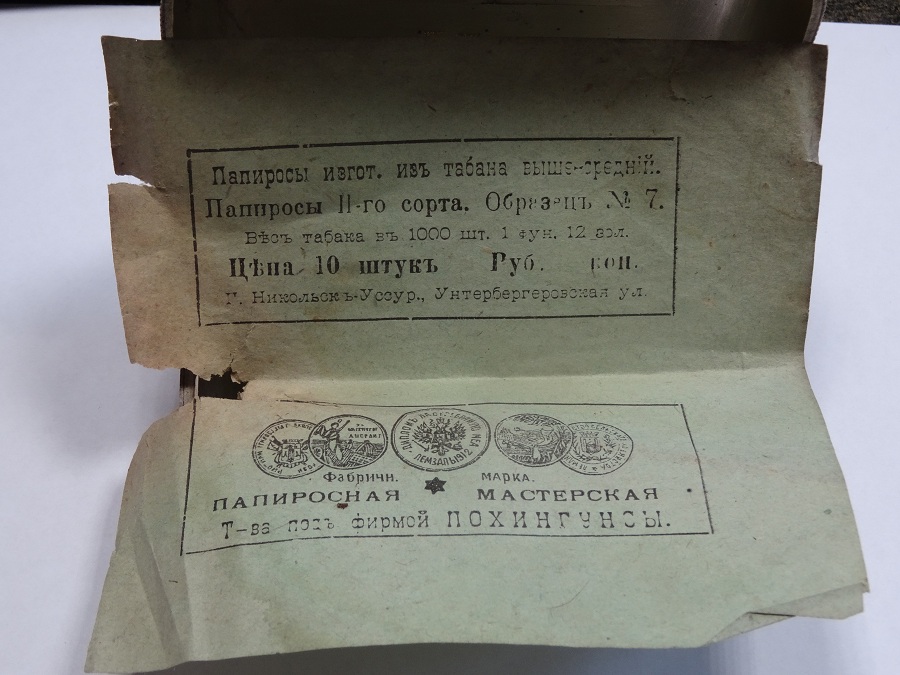 Папиросы изгот. изъ табака выше-средній.
Папиросы II-го сорта. Образецъ № 7.
Вѣсъ табака въ 1000 шт. 1 фун. 12 зол.
Цѣна 10 штукъ Руб. коп.
Г. Никольскъ-Уссур., Унтербергеровская ул.
ЛЕМЗАЛЬ 1912
Фабричн. МАРКА.
ПАПИРОСНАЯ МАСТЕРСКАЯ
Т-ва подъ фирмой ПОХИНГУНСЫ.